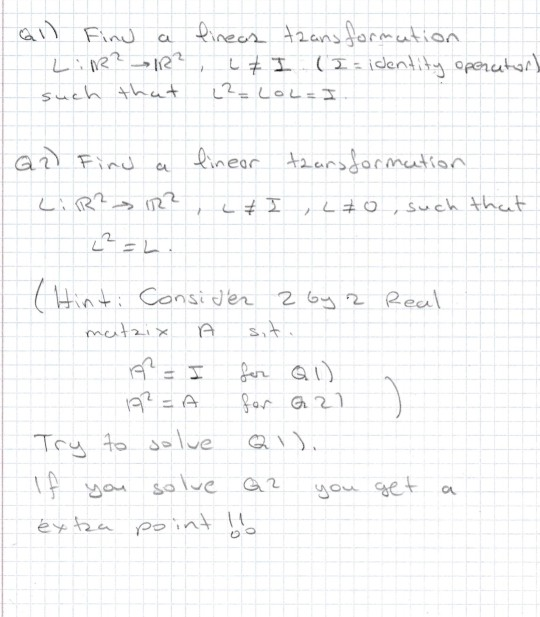 Q1) Find a linear transformation
L: ℝ² → ℝ², L ≠ I (I = identity operator)
such that L² = L∘L = I.
Q2) Find a linear transformation
L: ℝ² → ℝ², L ≠ I, L ≠ 0, such that
L² = L.
(Hint: Consider 2 by 2 Real
matrix A s.t.
A² = I for Q1)
A² = A for Q2) )
Try to solve Q1).
If you solve Q2 you get a
extra point !!